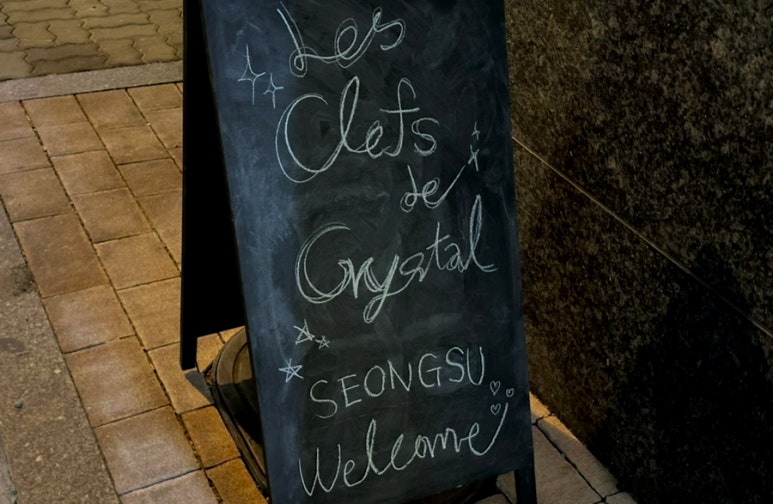 Les
Clefs
de
Crystal
SEONGSU
Welcome